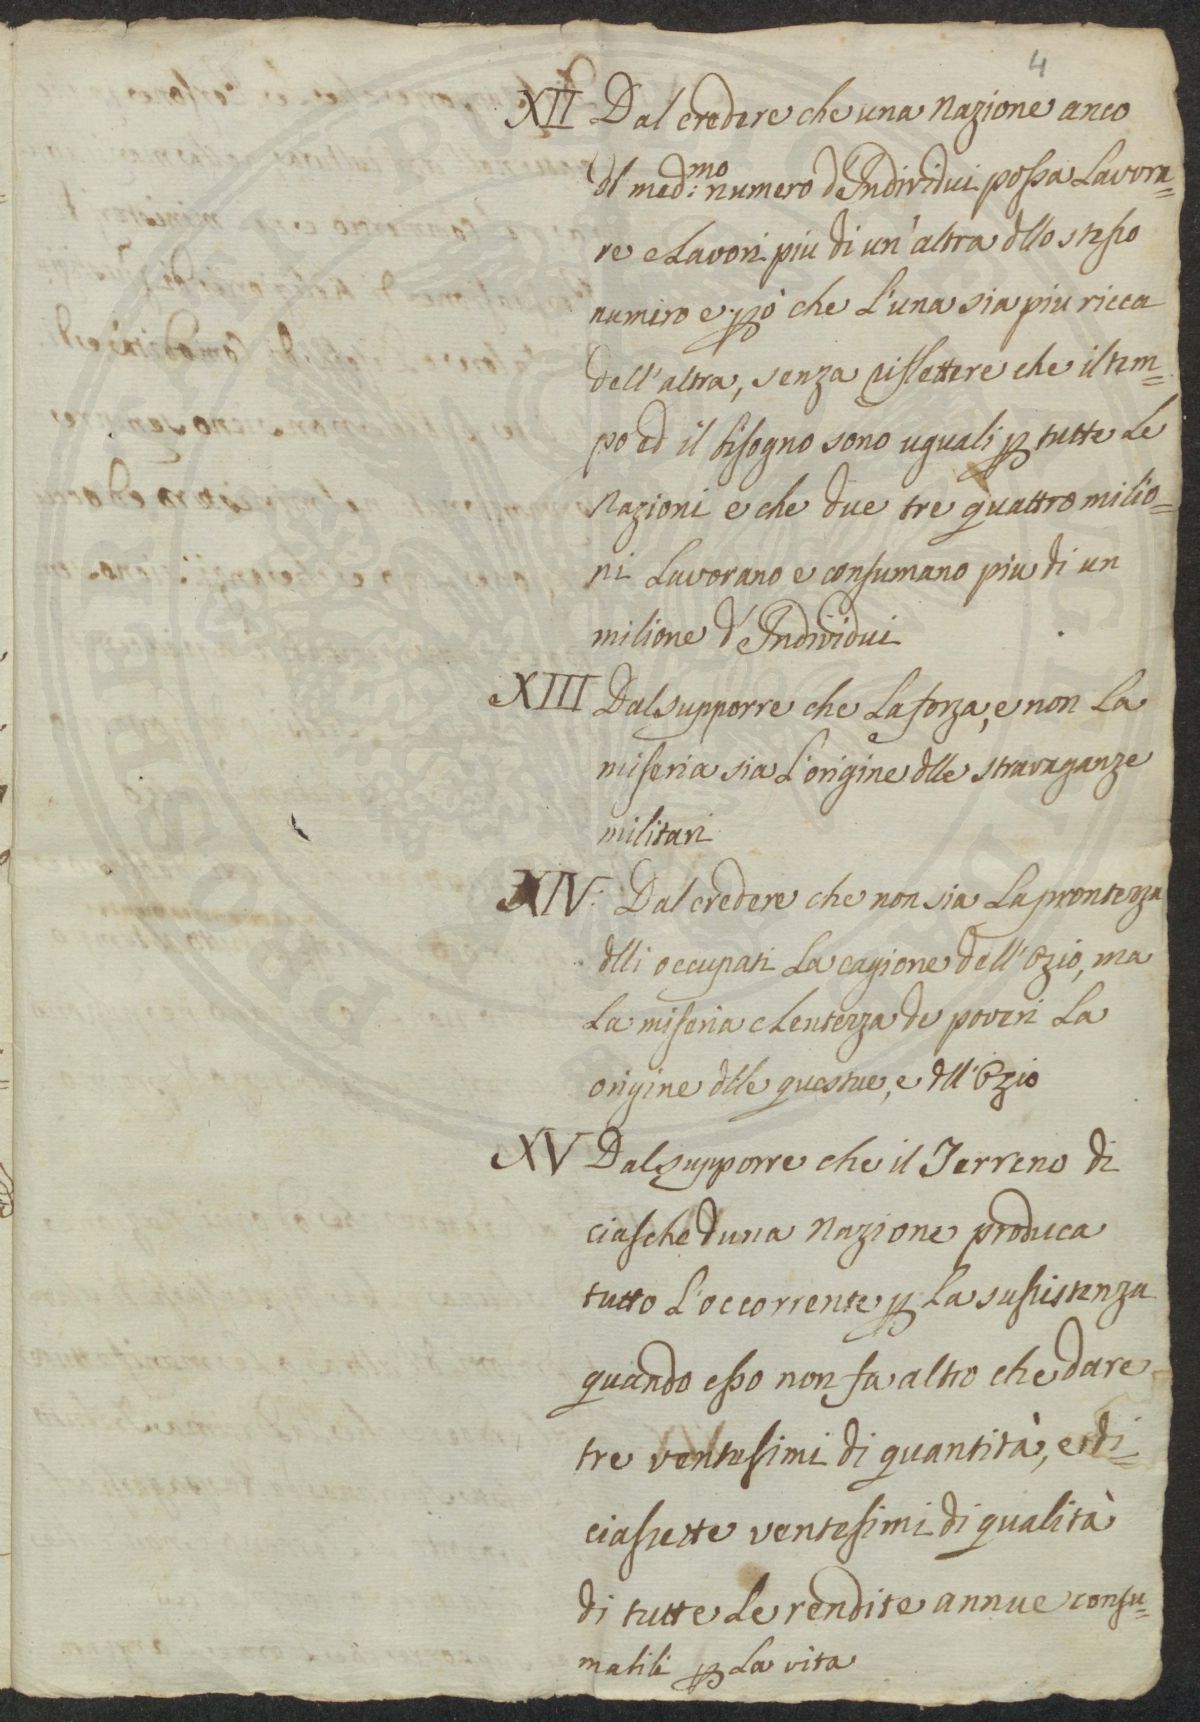 4
XII Dal credere che una Nazione anco
dl med:mo numero d'Individui possa Lavora=
re e Lavori piu di un'altra dllo stesso
numero e però che L'una sia piu ricca
dell'altra, senza riflettere che il tem=
po ed il bisogno sono uguali p tutte Le
Nazioni e che due tre quattro milio=
ni Lavorano e consumano piu di un
milione d'Individui
XIII Dal supporre che La forza, e non La
miseria sia L'origine dlle stravaganze
militari
XIV: Dal credere che non sia La prontezza
dlli occupati La cagione dell'Ozio, ma
La miseria e Lentezza de poveri La
origine dlle questue, e dll'Ozio
XV Dal supporre che il Terreno di
ciascheduna Nazione produca
tutto L'occorrente p La sussistenza
quando esso non fa altro che dare
tre ventesimi di quantità, e di=
ciassette ventesimi di qualità
di tutte Le rendite annue consu=
mabili p La vita